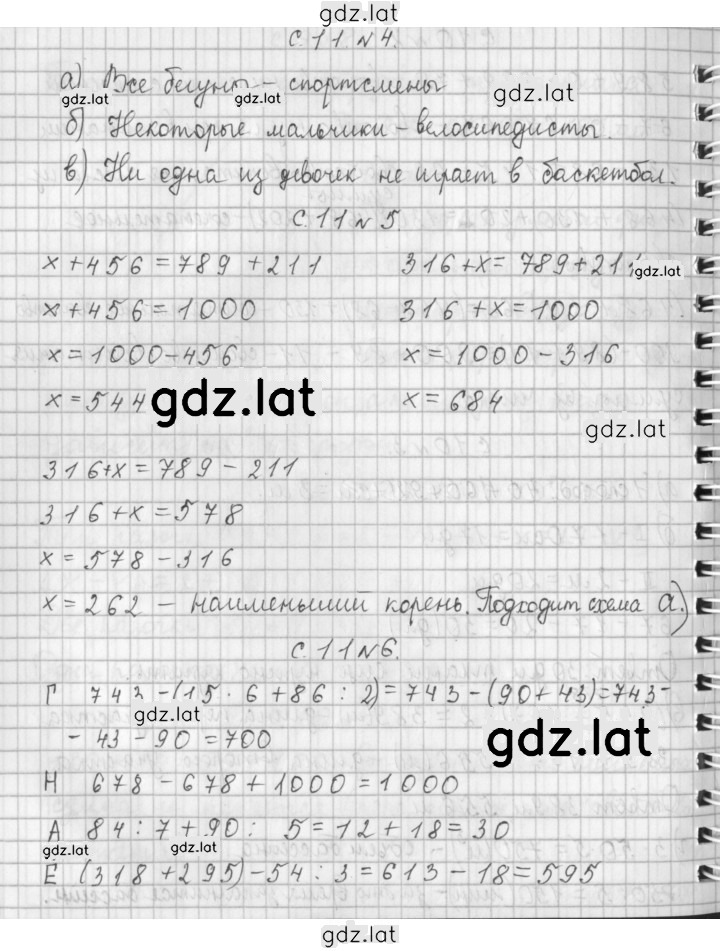 gdz.lat
с. 11 №4.
а) Все бегуны – спортсмены
gdz.lat gdz.lat gdz.lat
б) Некоторые мальчики – велосипедисты.
в) Ни одна из девочек не играет в баскетбол.
с. 11 №5
x + 456 = 789 + 211 316 + x = 789 + 211
gdz.lat
x + 456 = 1000 316 + x = 1000
x = 1000 – 456 x = 1000 – 316
x = 544 x = 684
gdz.lat gdz.lat
316 + x = 789 – 211
316 + x = 578
x = 578 – 316
x = 262 – наименьший корень. Подходит схема а.)
с. 11 №6.
Г 743 – (15 · 6 + 86 : 2) = 743 – (90 + 43) = 743 –
gdz.lat
– 43 – 90 = 700
gdz.lat
Н 678 – 678 + 1000 = 1000
А 84 : 7 + 90 : 5 = 12 + 18 = 30
gdz.lat gdz.lat
Е (318 + 295) – 54 : 3 = 613 – 18 = 595
gdz.lat